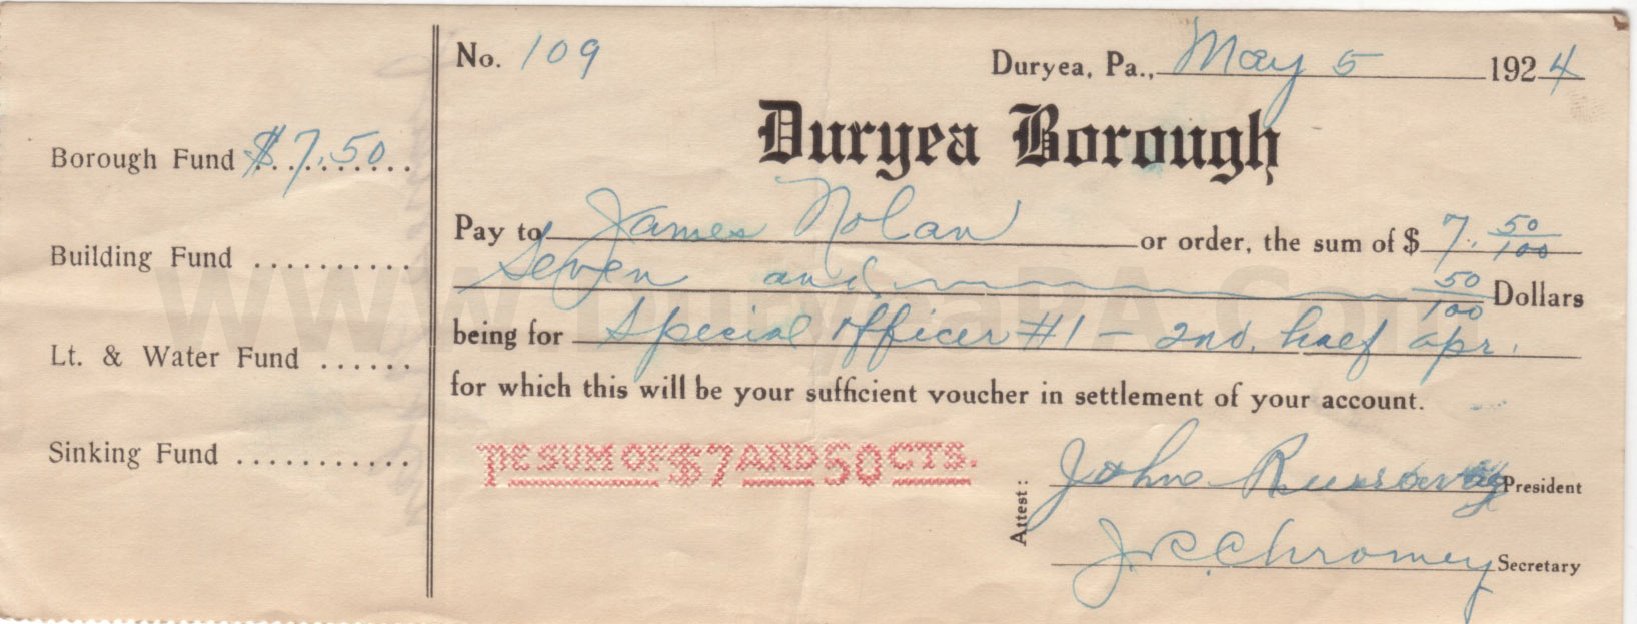 No. 109
Duryea, Pa., May 5 1924
Duryea Borough
Borough Fund $7.50
Pay to James Nolan or order, the sum of $ 7. 50/100
Building Fund ..........
Seven and 50/100 Dollars
WWW.DuryeaPA.Com
being for Special Officer #1 - 2nd. half apr.
Lt. & Water Fund ......
for which this will be your sufficient voucher in settlement of your account.
Sinking Fund ...........
THE SUM OF $7 AND 50 CTS.
Attest:
John President
J. C. Chromey Secretary